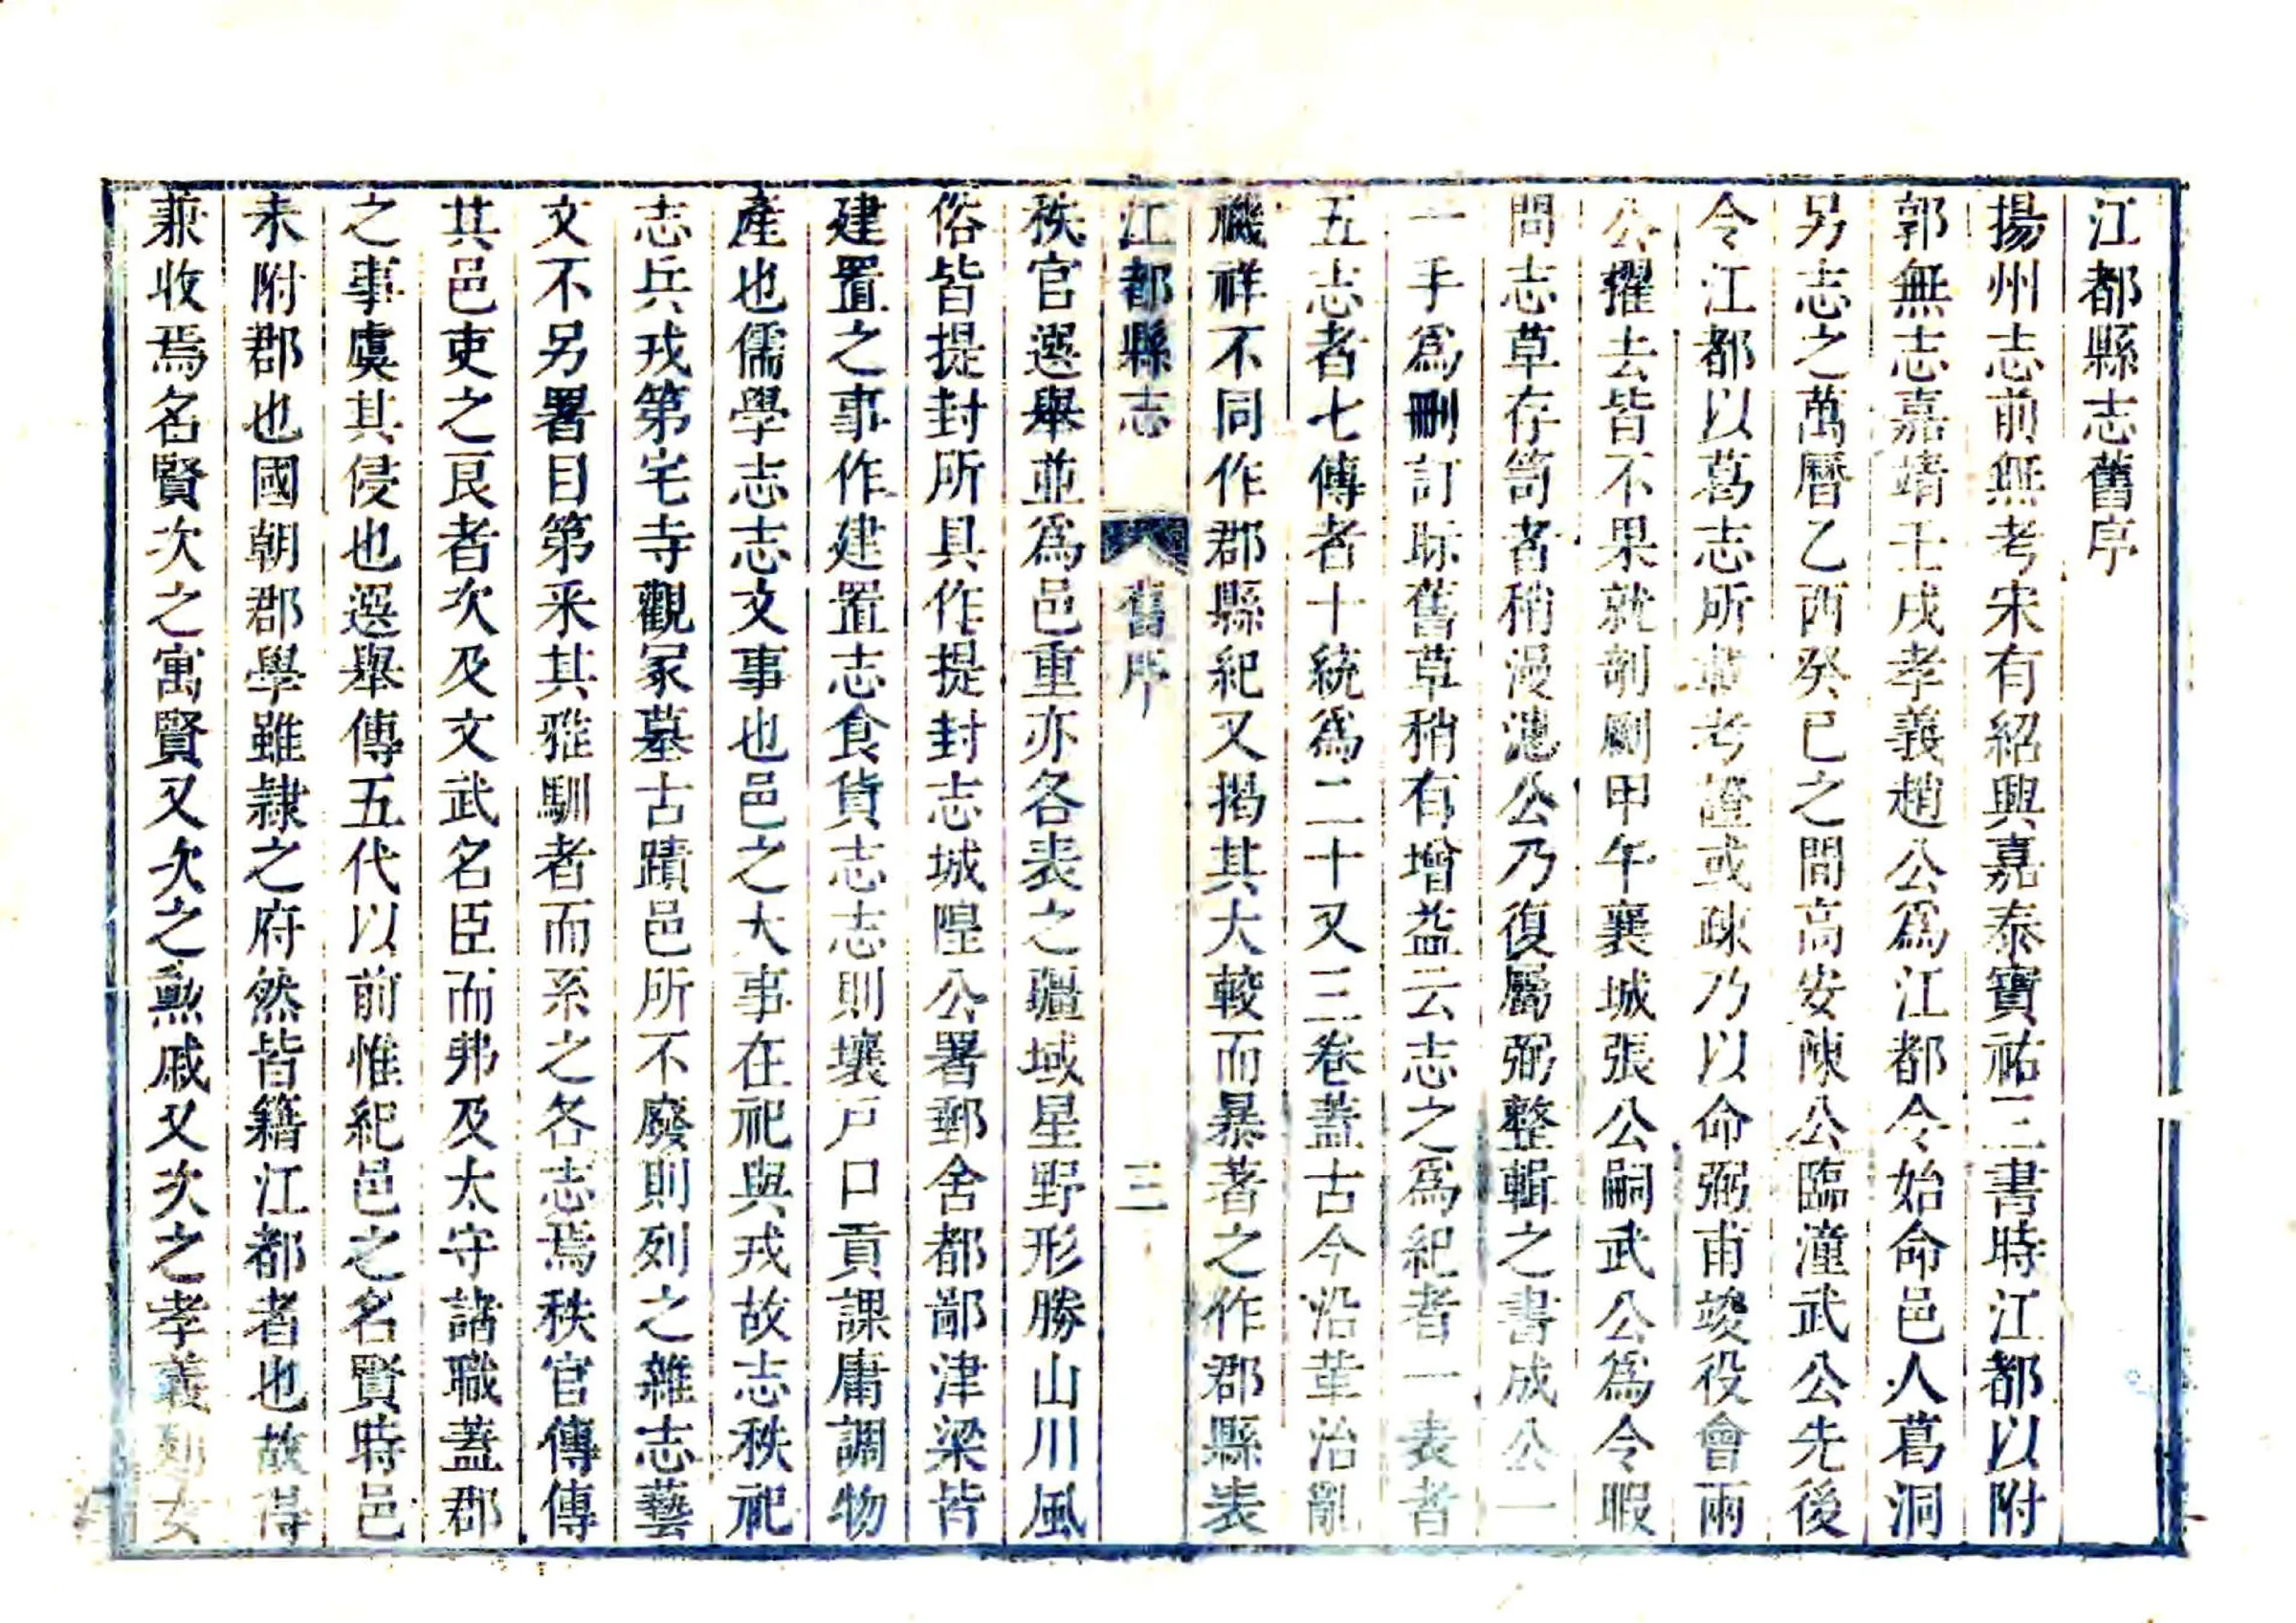 江都縣志舊序
揚州志前無考宋有紹興嘉泰寶祐三書時江都以附
郭無志嘉靖壬戌孝義趙公爲江都令始命邑人葛洞
另志之萬曆乙酉癸巳之間高安陳公臨潼武公先後
令江都以葛志所考證或疎乃以命弼甫竣役會兩
公擢去皆不果就剞劂甲午襄城張公嗣武公爲令暇
問志草存笥者稍漫漶公乃復屬弼整輯之書成公一
一手爲刪訂眎舊草稍有增益云志之爲紀者一表者
五志者七傳者十統爲二十又三卷蓋古今沿革治亂
禨祥不同作郡縣紀又揭其大較而暴著之作郡縣表
江都縣志 舊序 三
秩官選舉並爲邑重亦各表之疆域星野形勝山川風
俗皆提封所具作提封志城隍公署郵舍都鄙津梁皆
建置之事作建置志食貨志志則壤戶口貢課庸調物
產也儒學志志文事也邑之大事在祀與戎故志秩祀
志兵戎第宅寺觀冢墓古蹟邑所不廢則列之雜志藝
文不另署目第釆其雅馴者而系之各志焉秩官傳傳
其邑吏之良者次及文武名臣而弗及太守諸職蓋郡
之事虞其侵也選舉傳五代以前惟紀邑之名賢時邑
未附郡也國朝郡學雖隷之府然皆籍江都者也故得
兼收焉名賢次之寓賢又次之勲戚又次之孝義列女